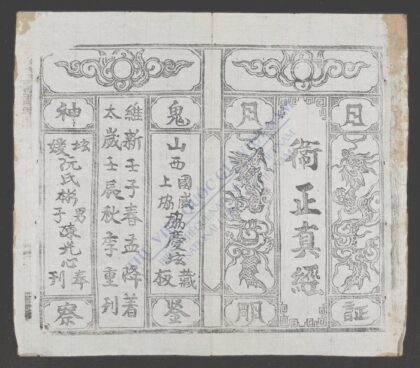 日
証
衛正真經
月
明
鬼
山西國威上協協慶坛藏板
鑒
維新壬子春孟降著
太歲壬辰秋季重刊
神
坛嫒阮氏彬男子陳光心奉刊
察